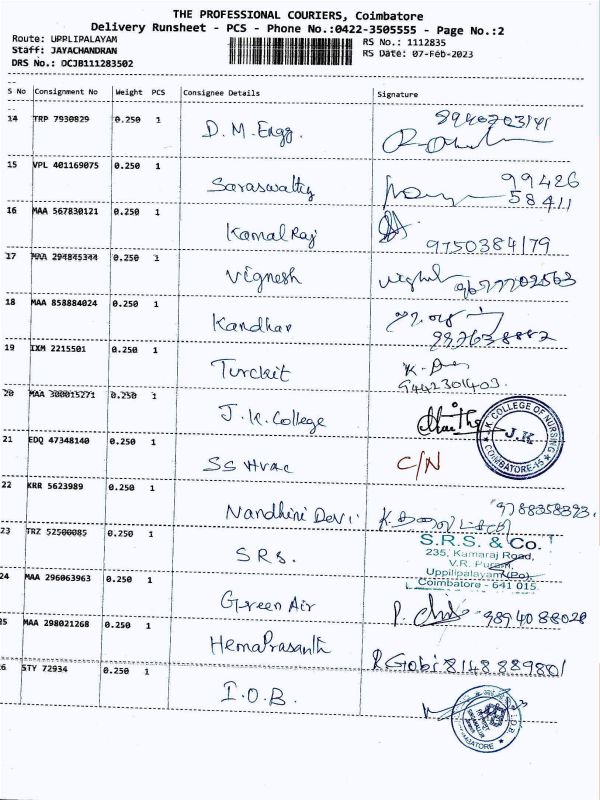 THE PROFESSIONAL COURIERS, Coimbatore
Delivery Runsheet - PCS - Phone No.:0422-3505555 - Page No.:2
Route: UPPLIPALAYAM
Staff: JAYACHANDRAN
DRS No.: DCJB111283502
RS No.: 1112835
RS Date: 07-Feb-2023
S No Consignment No Weight PCS Consignee Details Signature
14 TRP 7930829 0.250 1 D.M.Engg.
15 VPL 401169075 0.250 1 99426
58411
16 MAA 567830121 0.250 1 Kamal Raj 9750384179
17 MAA 294845344 0.250 1 Vignesh
18 MAA 858884024 0.250 1 Kandhan
19 IXM 2215501 0.250 1 9442301403.
20 MAA 300015271 0.250 1 J.K.College
K COLLEGE OF NURSING
J.K
COIMBATORE-15
21 EDQ 47348140 0.250 1 SS Hvac C/N
22 KRR 5623989 0.250 1 Nandhini Devi. 9788358393.
23 TRZ 52500085 0.250 1 S.R.S.
S.R.S. & Co.
235, Kamaraj Road,
V.R. Puram,
Uppilipalayam (Po),
Coimbatore - 641 015.
24 MAA 296063963 0.250 1 Green Air 9894088028
25 MAA 298021268 0.250 1 HemaPrasanth R Gobi 8148889801
26 STY 72934 0.250 1 I.O.B.